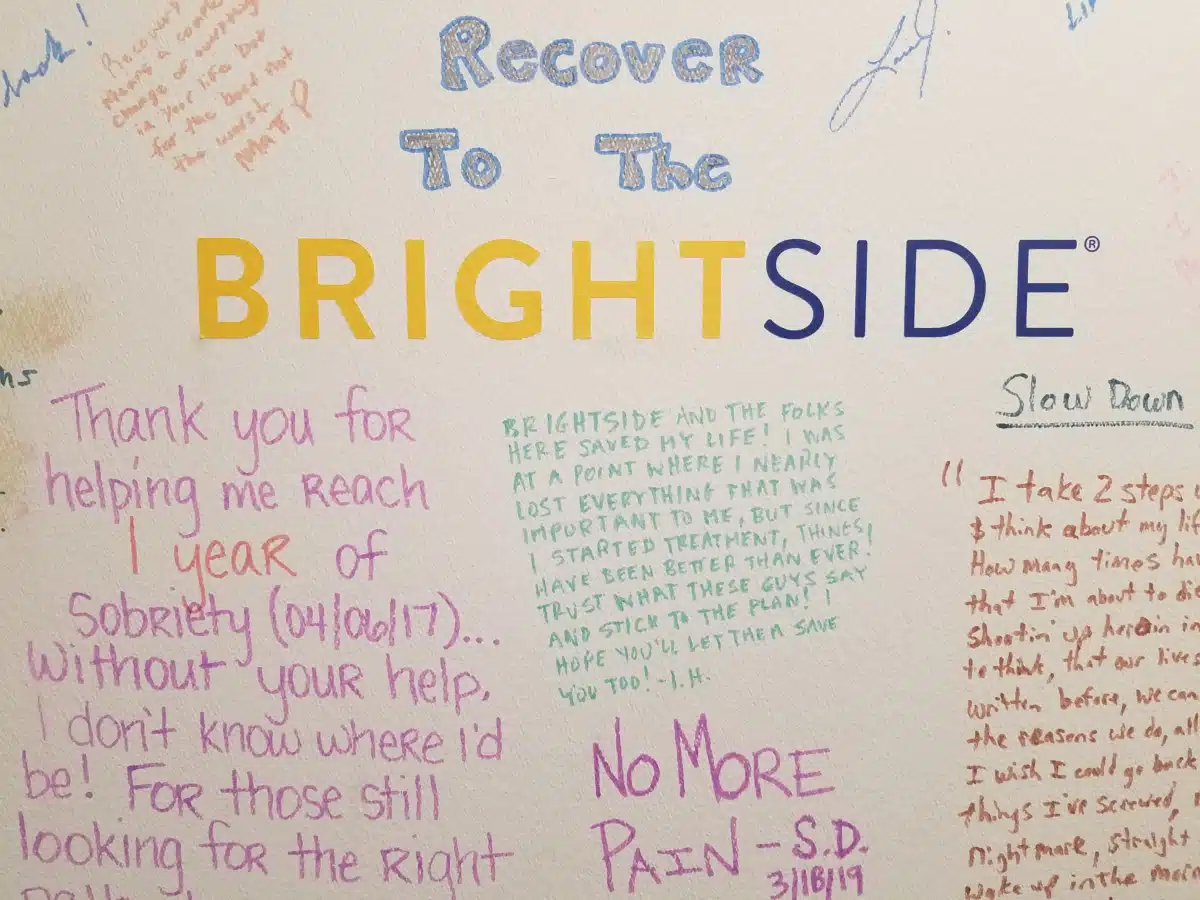 Recover
To The
BRIGHTSIDE®
back!
Recovery
Means a
change of
in your life but
for the best not
the worst
MATT P
Thank you for
helping me Reach
1 year of
Sobriety (04/06/17)...
Without your help,
I don't know where i'd
be! For those still
looking for the Right
BRIGHTSIDE AND THE FOLKS
HERE SAVED MY LIFE! I WAS
AT A POINT WHERE I NEARLY
LOST EVERYTHING THAT WAS
IMPORTANT TO ME, BUT SINCE
I STARTED TREATMENT, THINGS
HAVE BEEN BETTER THAN EVER!
TRUST WHAT THESE GUYS SAY
AND STICK TO THE PLAN! I
HOPE YOU'LL LET THEM SAVE
YOU TOO! -J.H.
NO MORE
PAIN - S.D.
3/18/19
Slow Down
" I take 2 steps
$ think about my lif
How many times hav
that I'm about to die
Shootin' up heroin in
to think, that our lives
written before, we can
the reasons we do, all
I wish I could go back
things I've screwed,
nightmare, straight
wake up in the morn